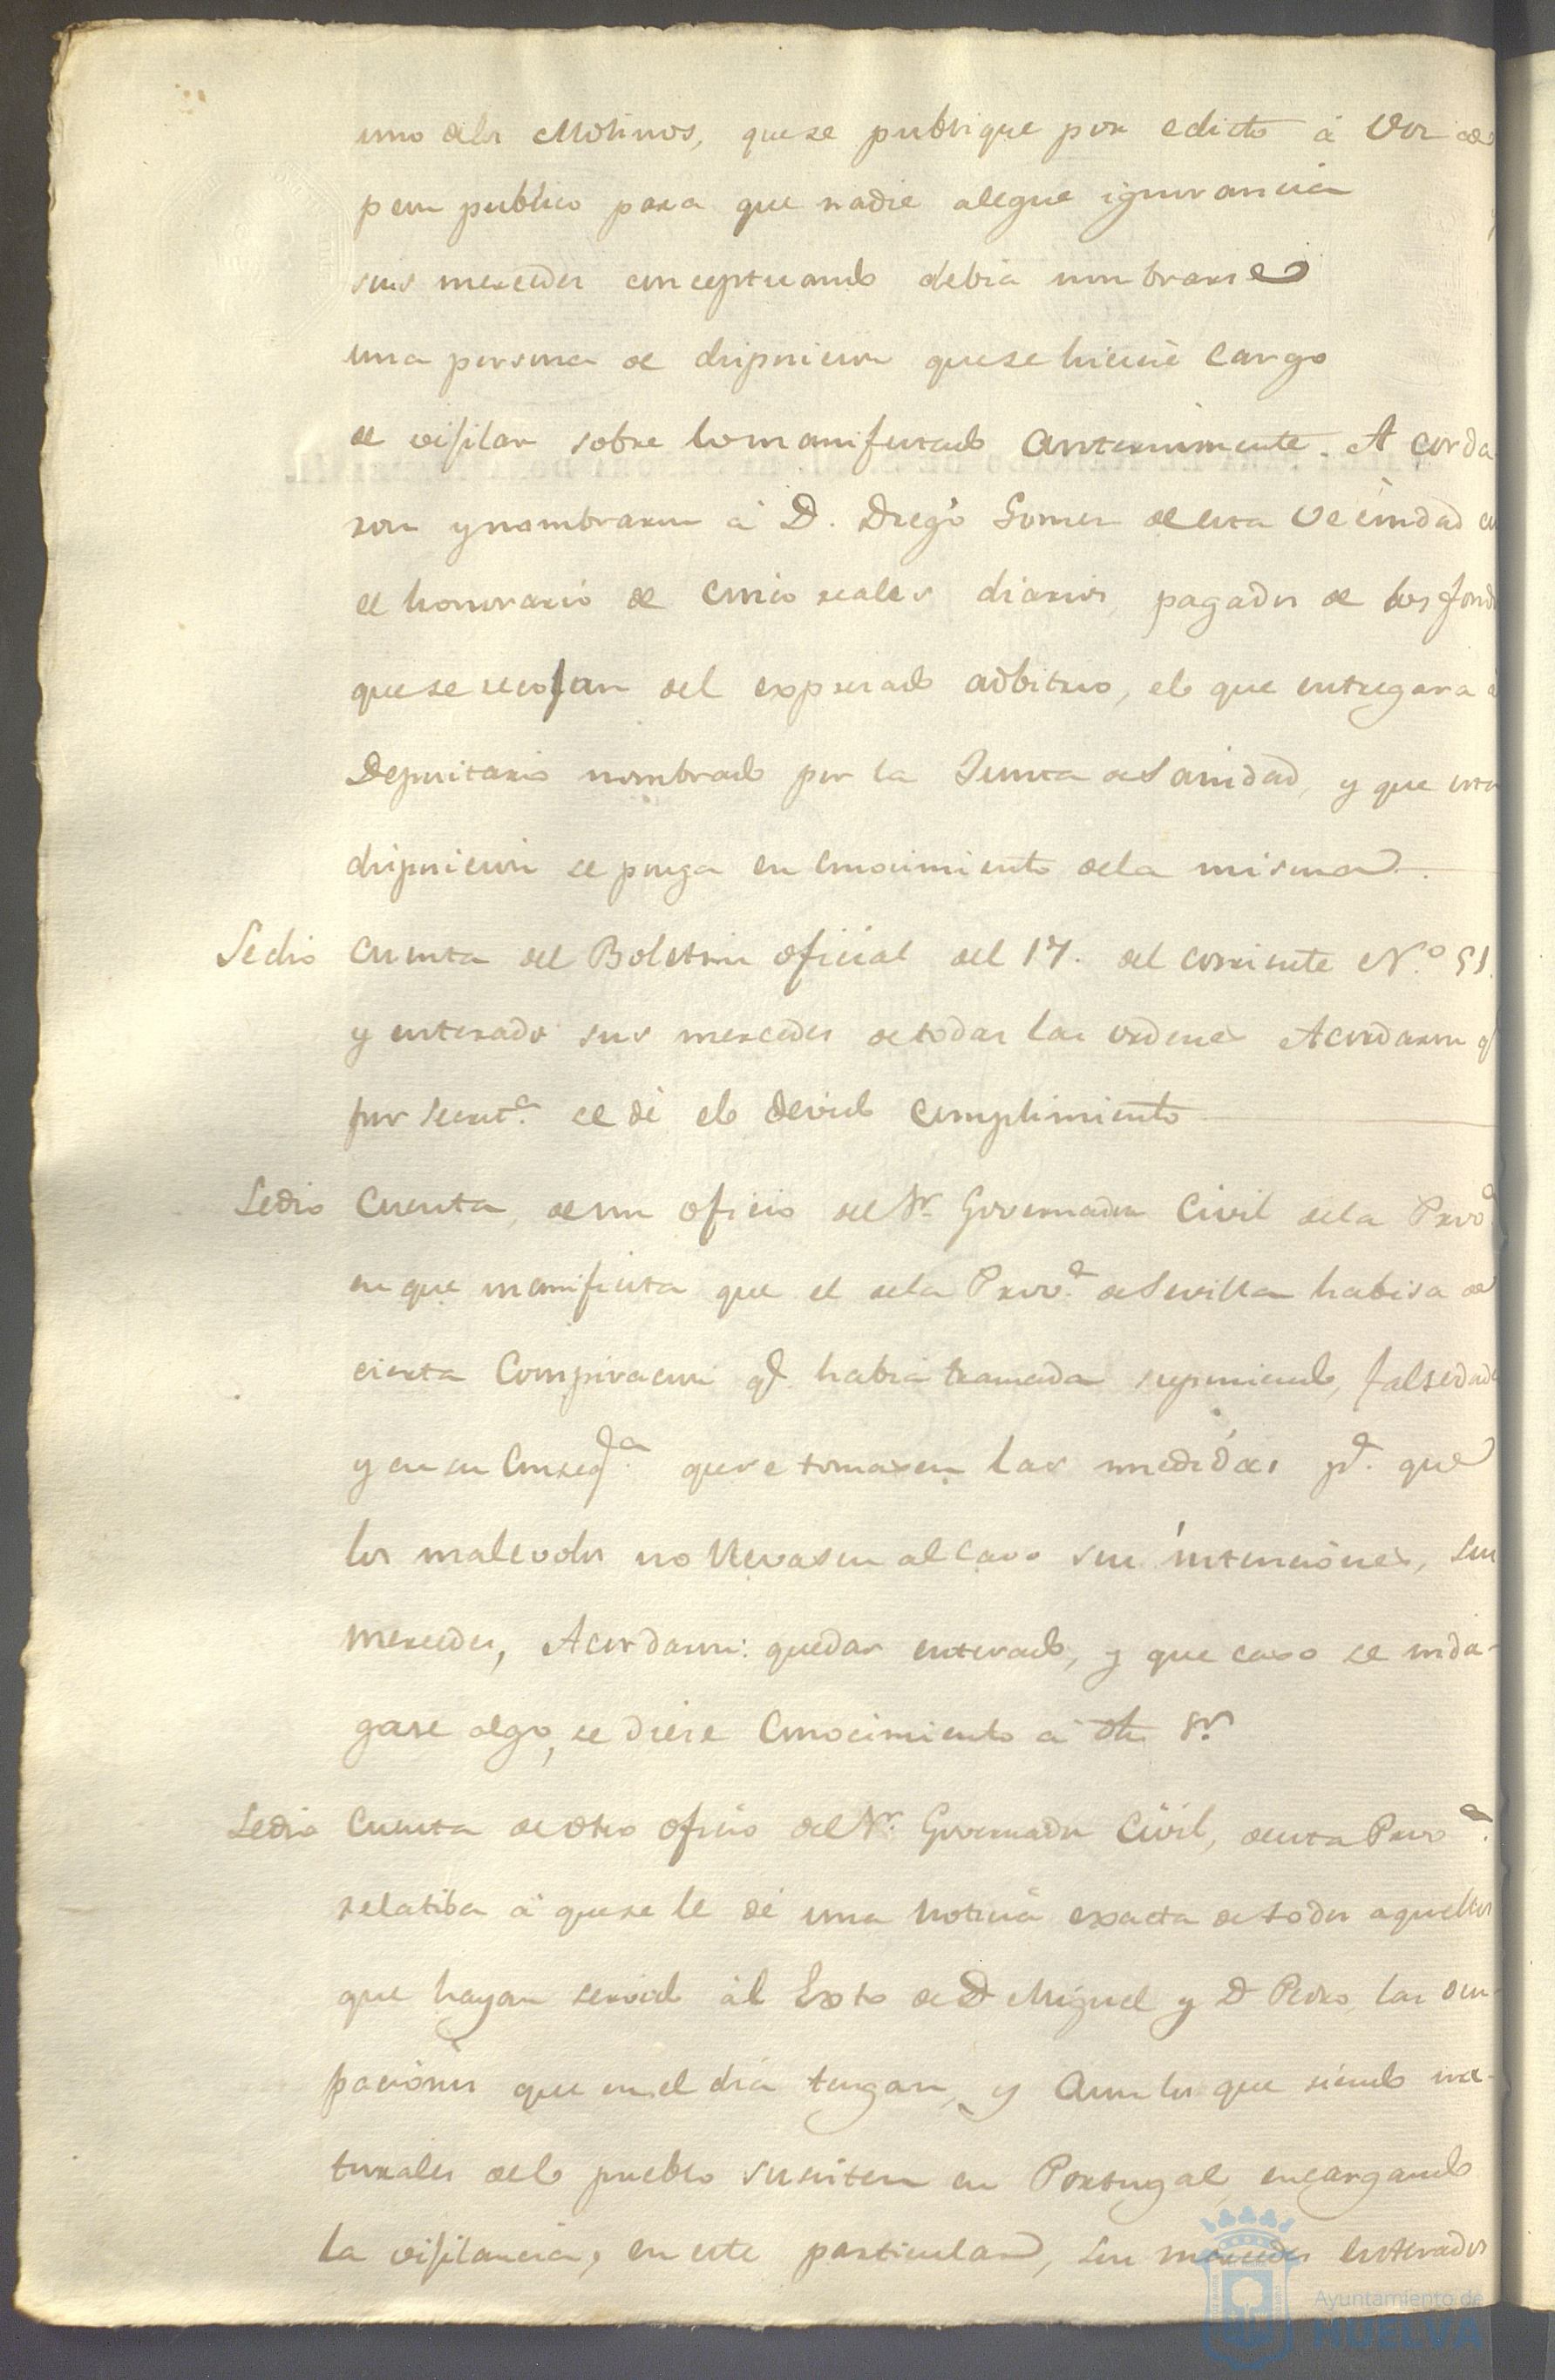 uno delos Molinos, quese publique por edicto á Voz de
pon publico para que nadie alegue ignorancia
sus mercedes conceptuando debia nombrarse
una persona de disposicion quese hiciese cargo
de vijilar sobre lo manifestado anteriormente. Acorda
ron y nombraron á D. Diego Gomez de esta Vecindad con
el honorario de cinco reales diarios, pagados de los fondos
quese recojan del expresado adbitrio, el que entregara á
Depositario nombrado por la Junta de Sanidad, y que esta
disposicion se ponga en conocimiento dela misma.
Se dio cuenta del Boletin oficial del 17. del corriente N.º 51.
y enterado sus mercedes de todas las ordenes Acordaron q.
por Secret.ª se dé el devido cumplimiento
Se dio Cuenta, de un oficio del S.r Governador Civil dela Prov.ª
en que manifiesta que el dela Prov.ª de Sevilla habisa de
cierta Conspiracion q.e habia tramada suponiendo, falsedades
y en su Conseq.ª que se tomasen las medidas p.ª que
los malevolos no llevasen al cavo sus intenciones, sus
mercedes, Acordaron: quedar enterado, y que caso se inda-
gase algo, se diese Conocimiento á dho S.r
Se dio Cuenta de otro oficio del S.r Governador Civil, de esta Prov.ª
relatiba á quese le dé una noticia exacta de todos aquellos
que hayan servido ál Exto de D. Miguel y D. Pedro, las ocu-
paciónes que en el dia tengan, y Aun los que siendo na-
turales delo pueblo susisten en Portugal, encargando
la vijilancia, en este particular, sus mercedes enterados
Ayuntamiento de
HUELVA